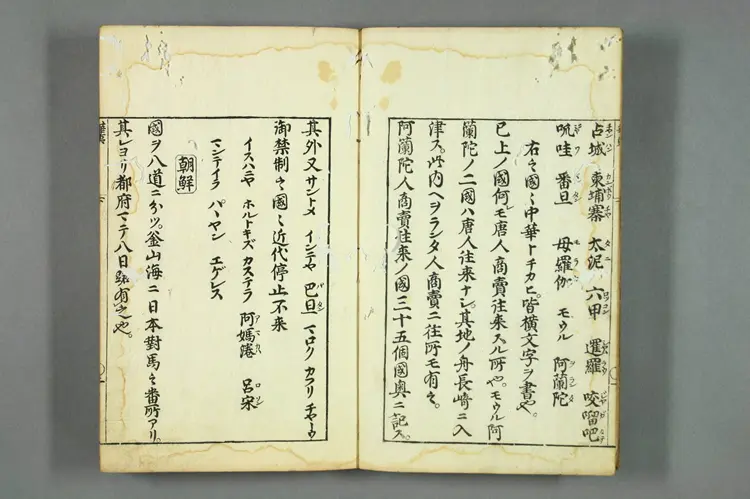 占城 柬埔寨 太泥 六甲 暹羅 咬𠺕吧
吮哇 番旦 母羅伽 モウル 阿蘭陀
右之國〻中華トチカヒ皆橫文字ヲ書也。
已上ノ國何レモ唐人商賣往来スル所也。モウル阿
蘭陀ノ二國ハ唐人往来ナシ。其地ノ舟長崎ニ入
津ス。此内ヘヲランダ人商賣ニ往所モ有之。
阿蘭陀人商賣往来ノ國三十五個國奥ニ記ス。
其外又サントメ インデヤ 巴旦 マロク カフリ チャウ
御禁制之國〻近代停止不来
イスハニヤ ホルトギズ カステラ 阿媽港 呂宋
マンテイラ パヽヤン エゲレス
朝鮮
國ヲ八道ニ分ツ。釜山海ニ日本對馬之番所アリ。
其レヨリ都府マテ八日路有之也。